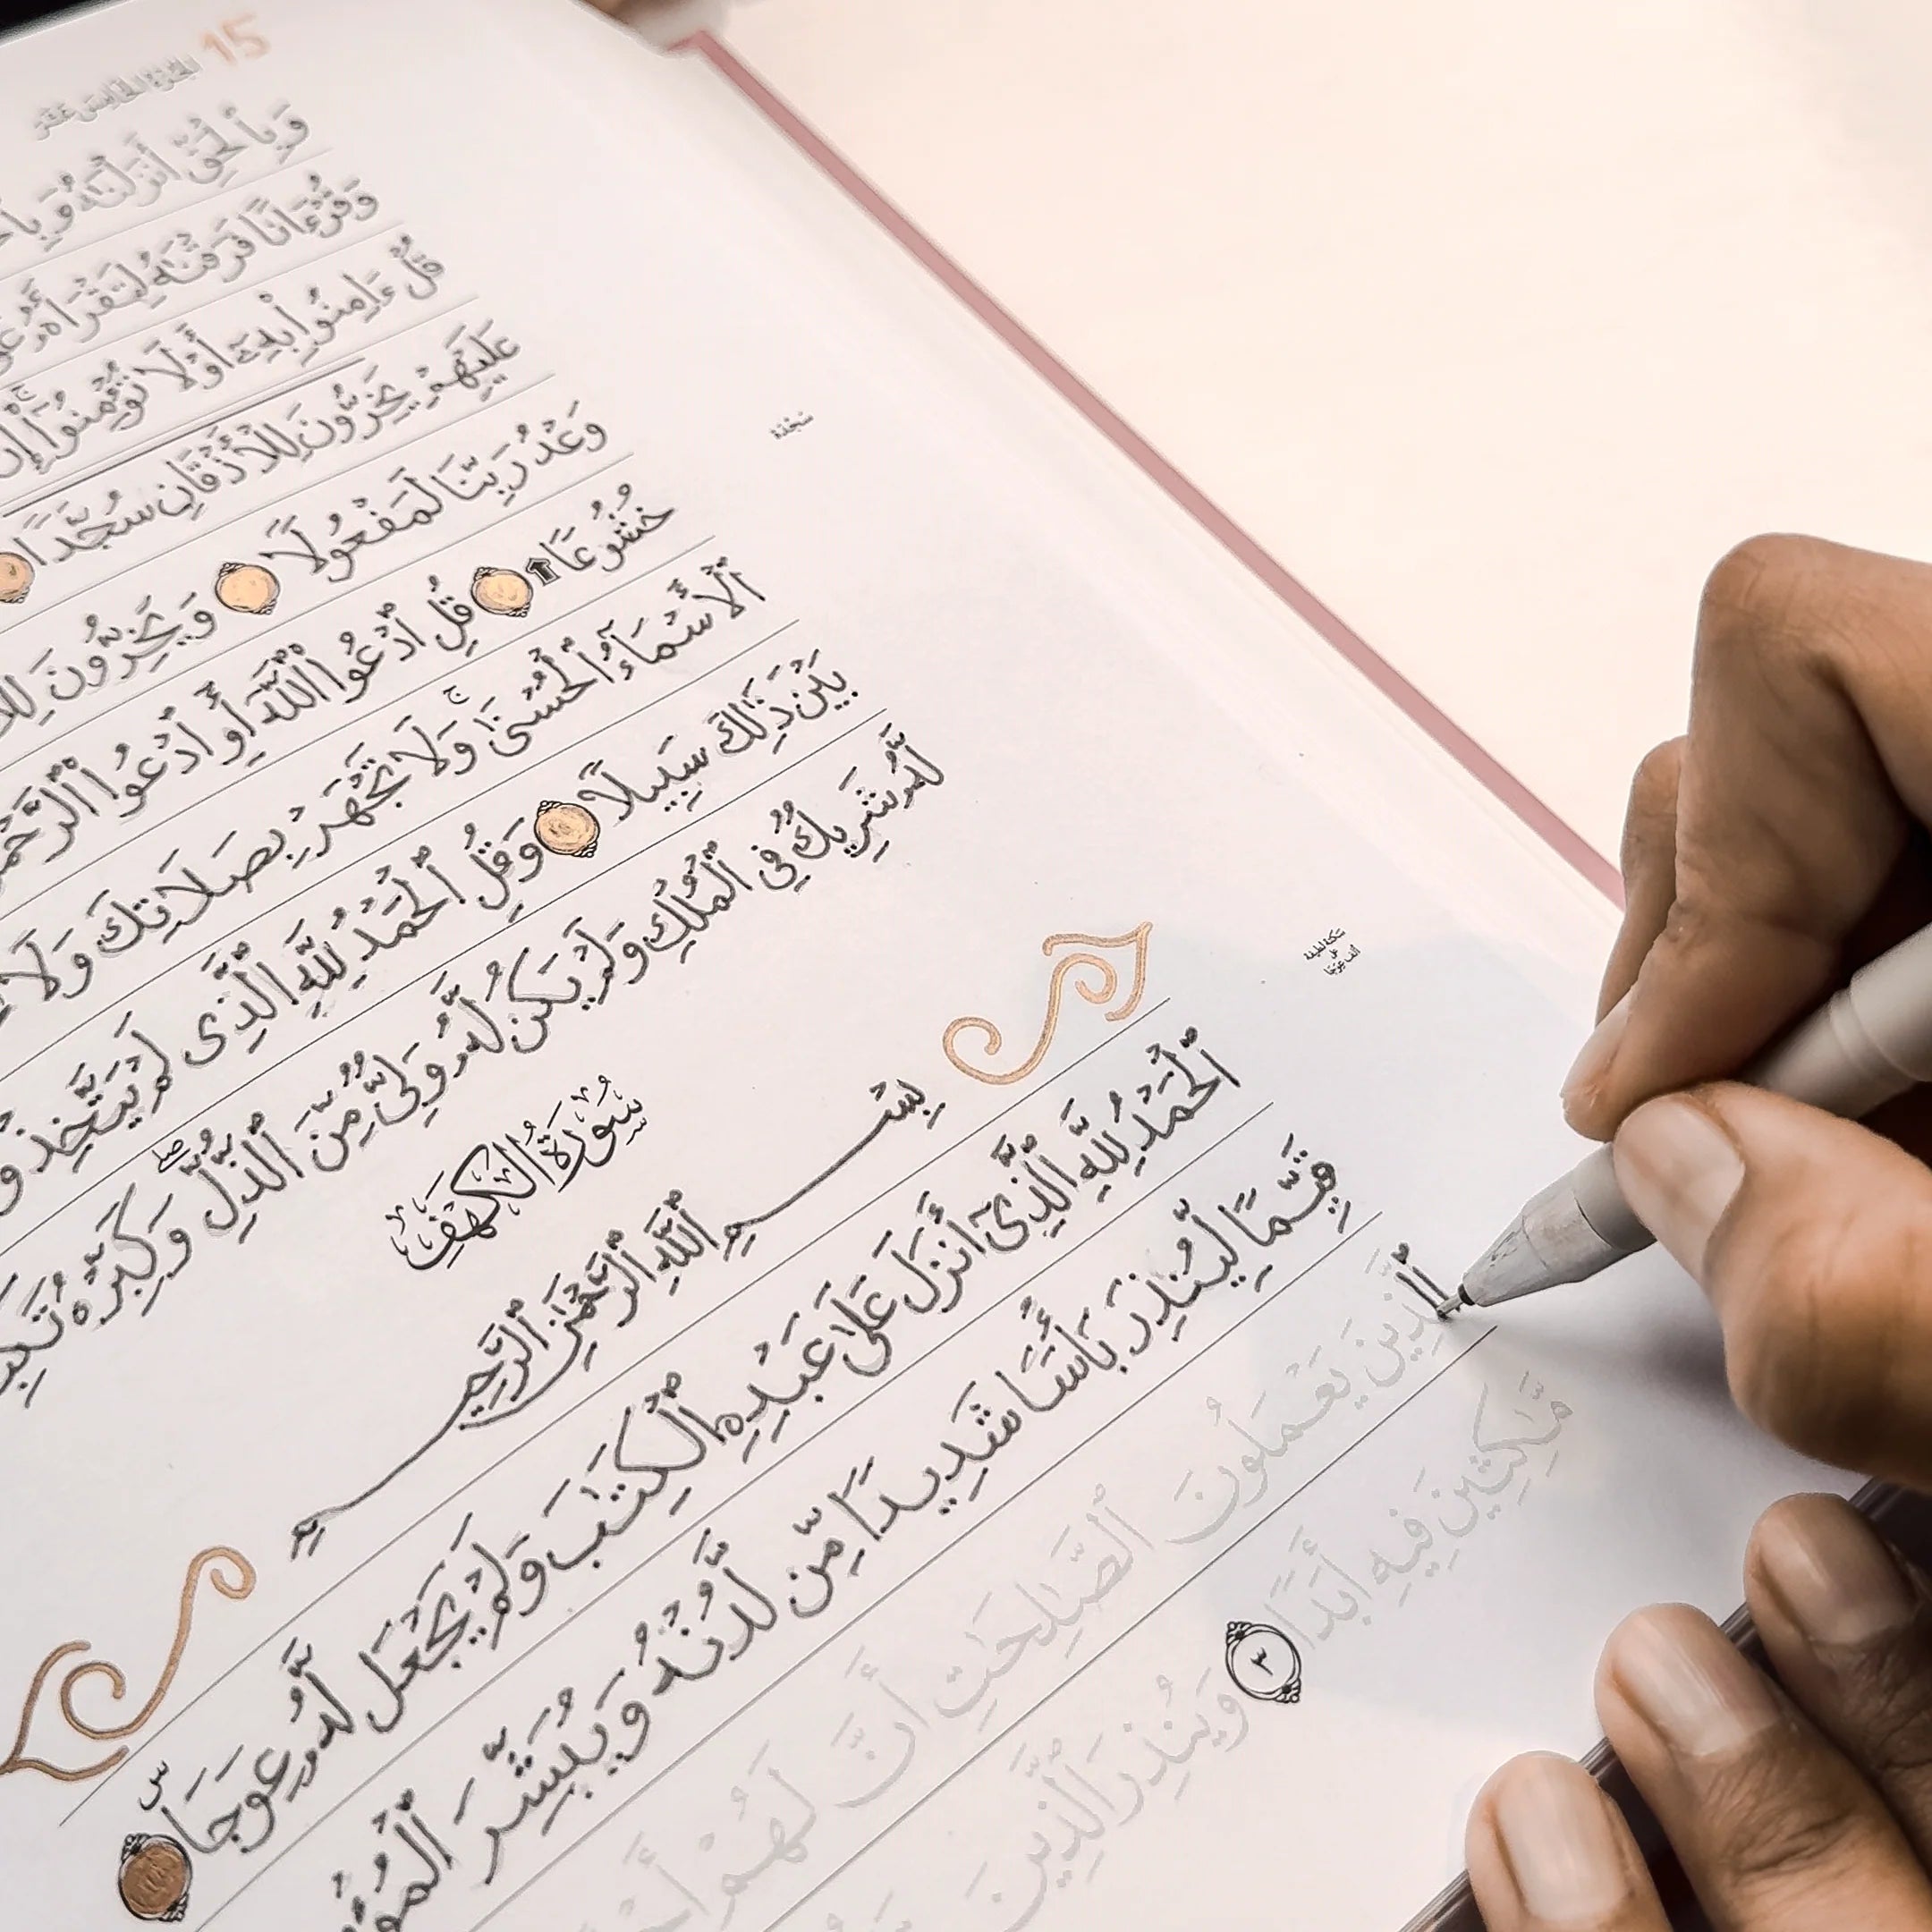 15
الجزء الخامس عشر
وَبِٱلْحَقِّ أَنزَلْنَٰهُ وَبِٱلْحَ
وَقُرْءَانًا فَرَقْنَٰهُ لِتَقْرَأَهُۥ عَ
قُلْ ءَامِنُوا۟ بِهِۦٓ أَوْ لَا تُؤْمِنُوٓا۟ ۚ إِنَّ
عَلَيْهِمْ يَخِرُّونَ لِلْأَذْقَانِ سُجَّدًا
سَجْدَة
وَعْدُ رَبِّنَا لَمَفْعُولًا وَيَخِرُّونَ لِلْأَ
خُشُوعًا قُلِ ٱدْعُوا۟ ٱللَّهَ أَوِ ٱدْعُوا۟ ٱلرَّحْمَ
ٱلْأَسْمَآءُ ٱلْحُسْنَىٰ ۚ وَلَا تَجْهَرْ بِصَلَاتِكَ وَلَا
بَيْنَ ذَٰلِكَ سَبِيلًا وَقُلِ ٱلْحَمْدُ لِلَّهِ ٱلَّذِى لَمْ يَتَّخِذْ وَ
لَّهُۥ شَرِيكٌ فِى ٱلْمُلْكِ وَلَمْ يَكُن لَّهُۥ وَلِىٌّ مِّنَ ٱلذُّلِّ ۖ وَكَبِّرْهُ تَكْبِ
سُورَةُ الكَهْفِ
بِسْمِ ٱللَّهِ ٱلرَّحْمَٰنِ ٱلرَّحِيمِ
ٱلْحَمْدُ لِلَّهِ ٱلَّذِىٓ أَنزَلَ عَلَىٰ عَبْدِهِ ٱلْكِتَٰبَ وَلَمْ يَجْعَل لَّهُۥ عِوَجَا ۜ
سكتة لطيفة
على
ألف عوجا
قَيِّمًا لِّيُنذِرَ بَأْسًا شَدِيدًا مِّن لَّدُنْهُ وَيُبَشِّرَ ٱلْمُؤْ
ٱلَّذِينَ يَعْمَلُونَ ٱلصَّٰلِحَٰتِ أَنَّ لَهُمْ أَجْ
مَّٰكِثِينَ فِيهِ أَبَدًا ٣ وَيُنذِرَ ٱلَّذِينَ